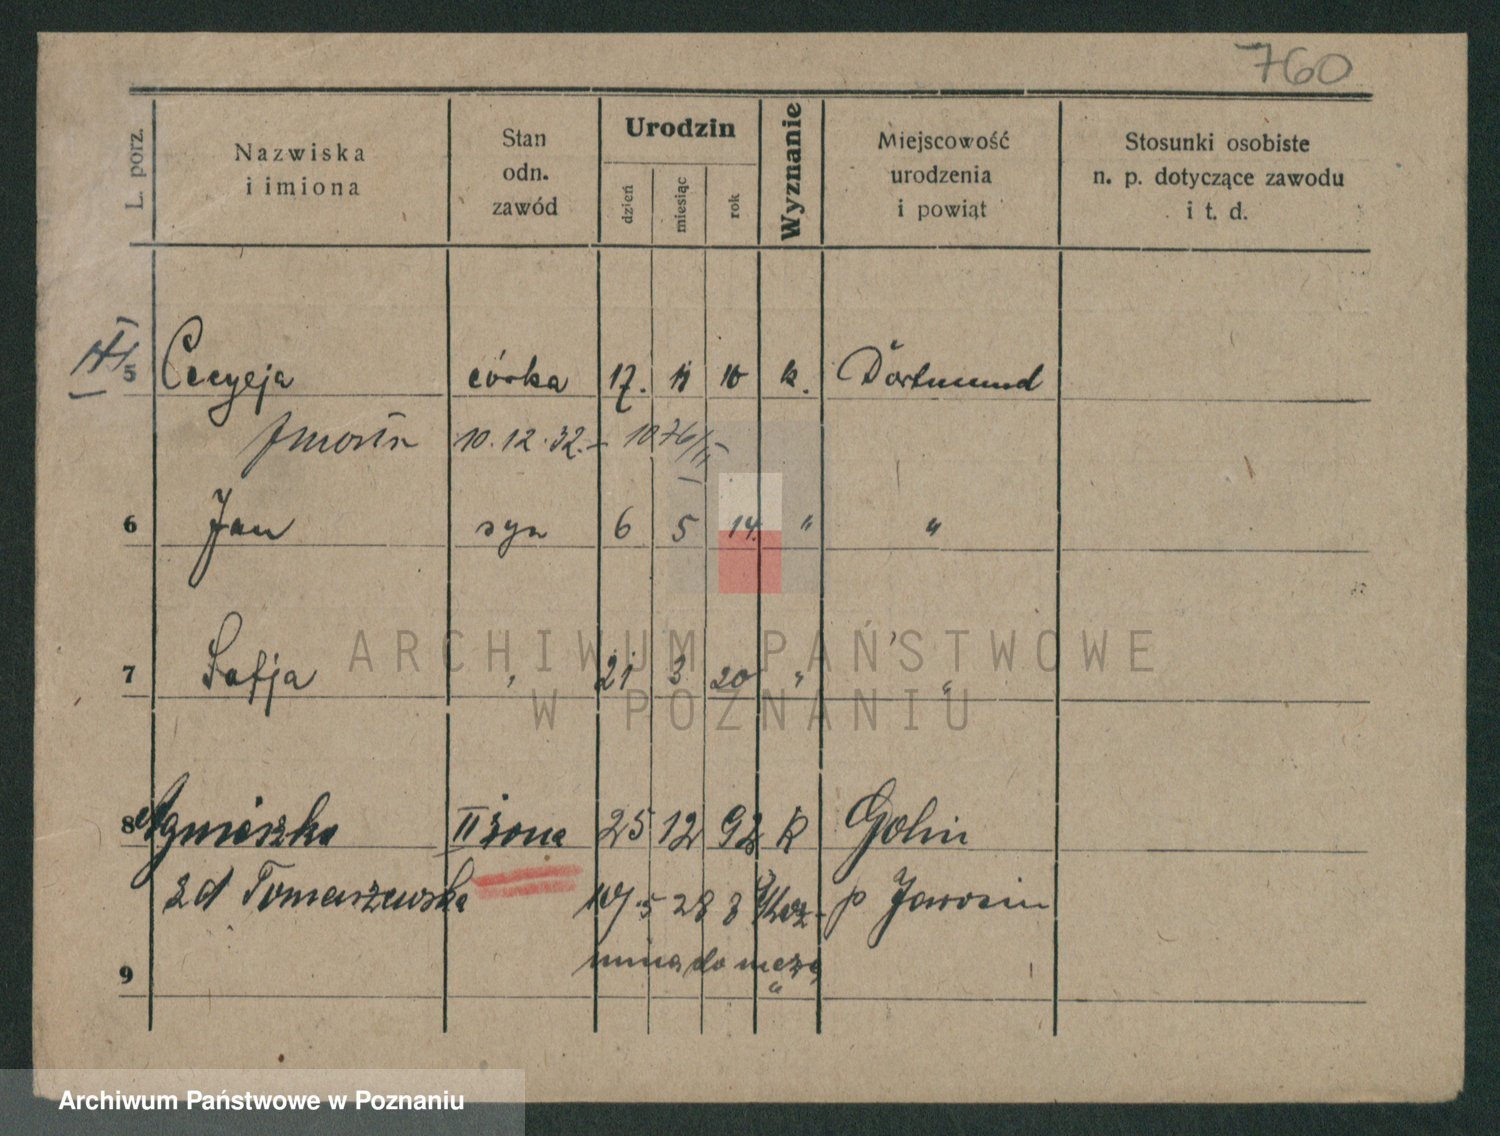 760
L. porz.
Nazwiska
i imiona
Stan
odn.
zawód
Urodzin
dzień
miesiąc
rok
Wyznanie
Miejscowość
urodzenia
i powiat
Stosunki osobiste
n. p. dotyczące zawodu
i t. d.
5 Cecylja córka 17. 11 10 k. Dortmund
zmarła 10.12.32.- 1076/
6 Jan syn 6 5 14. " "
7 Sofja " 21 3 20 " "
8 Agnieszka II żona 25 12 92 K Golin
zd Tomaszewska 5 28 p Jarocin
do męża
9
ARCHIWUM PAŃSTWOWE
W POZNANIU
Archiwum Państwowe w Poznaniu